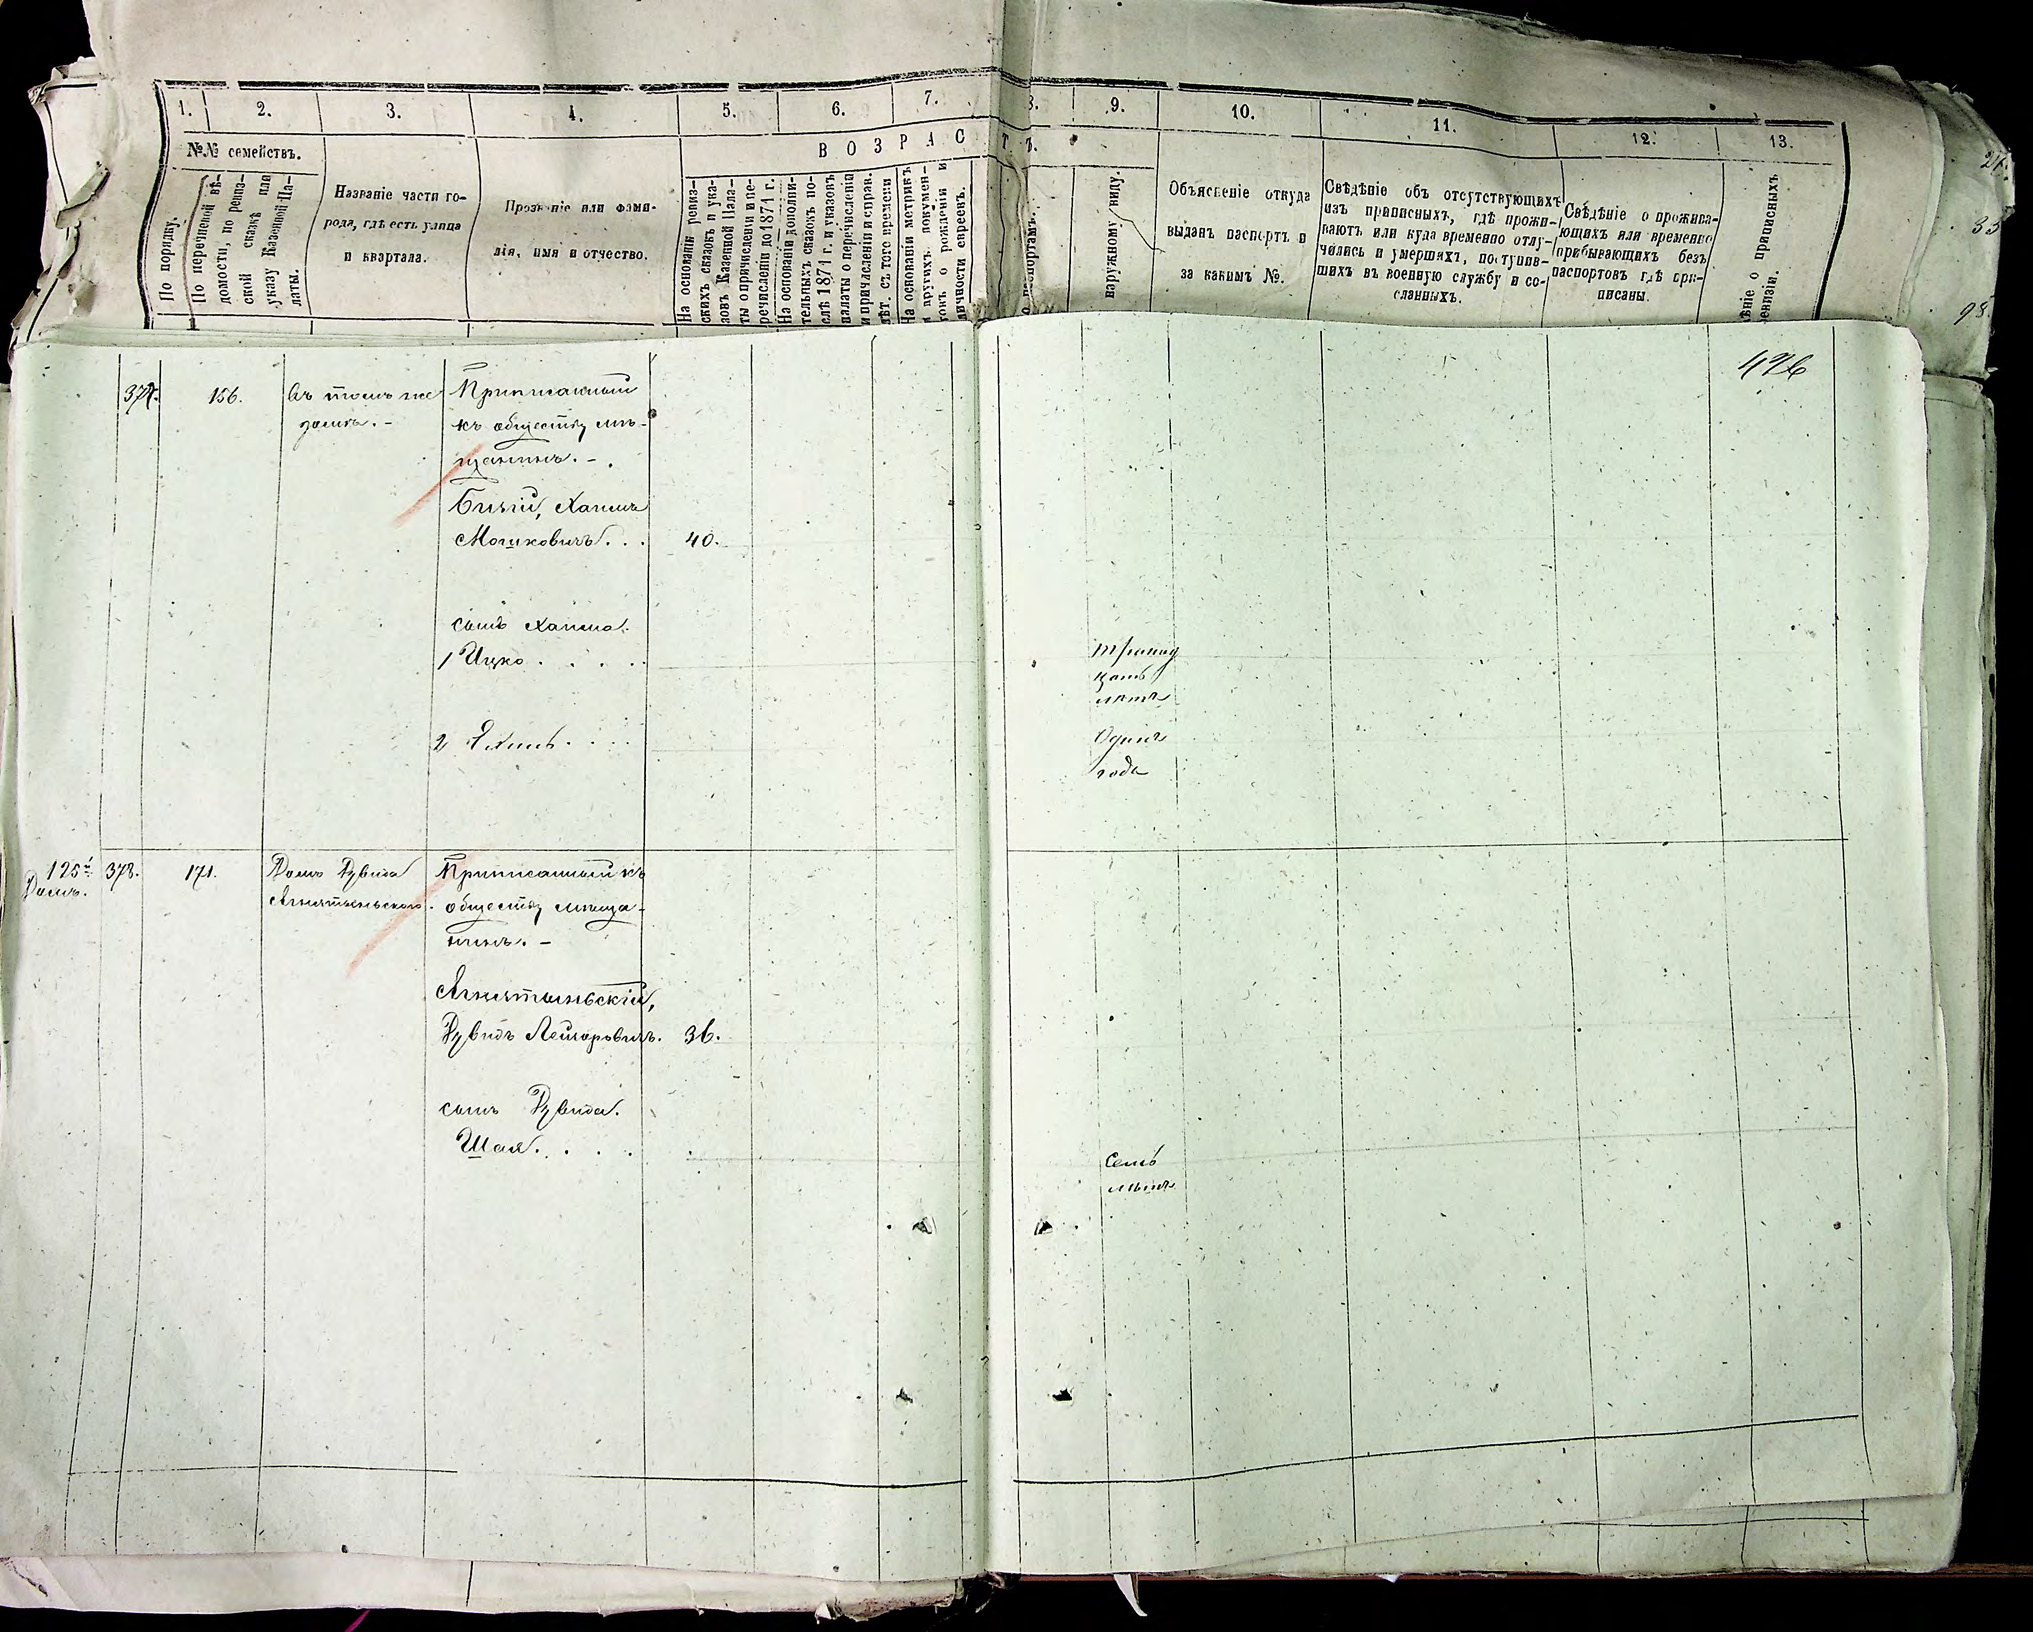 1. 2. 3. 4. 5. 6. 7. 8. 9. 10. 11. 12. 13.
№№ семействъ.
ВОЗРАСТЪ.
По порядку.
По перечневой вѣ-
домости, по ревиз-
ской сказкѣ или
указу Казенной Па-
латы.
Названіе части го-
рода, гдѣ есть улица
и квартала.
Прозваніе или фами-
лія, имя и отчество.
На основаніи ревиз-
скихъ сказокъ и ука-
зовъ Казенной Пала-
ты о причисленіи и пе-
речисленіи до 1871 г.
На основаніи дополни-
тельныхъ сказокъ по-
слѣ 1871 г. и указовъ
палаты о перечисленіи
и причисленіи и справ.
лѣт. съ того времени
На основаніи метрикъ
и другихъ докумен-
товъ о рожденіи и
личности евреевъ.
паспортамъ.
наружному виду.
Объясненіе откуда
выданъ паспортъ и
за какимъ №.
Свѣдѣніе объ отсутствующихъ
изъ приписныхъ, гдѣ прожи-
ваютъ или куда временно отлу-
чились и умершихъ, поступив-
шихъ въ военную службу и со-
сланныхъ.
Свѣдѣніе о прожива-
ющихъ или временно
прибывающихъ безъ
паспортовъ гдѣ при-
писаны.
о приписныхъ
ревизіи.
24.
35
98.
476
377. 156. Въ томъ же Приписанный
домѣ. - къ обществу мѣ-
щанинъ. -
Хаимъ
Мошковичъ . . . 40.
сынъ Хаима.
1 Ицко . . . . . тринад
цать
лѣтъ
2 . . . . Одинъ
годъ
125й 378. 171. Домъ Дувида Приписанный къ
Домъ. Агнятынскаго. обществу мѣща-
нинъ. -
Агнятыньскій,
Дувидъ Лейзоровичъ. 36.
сынъ Дувида.
Шая . . . . . Семь
лѣтъ